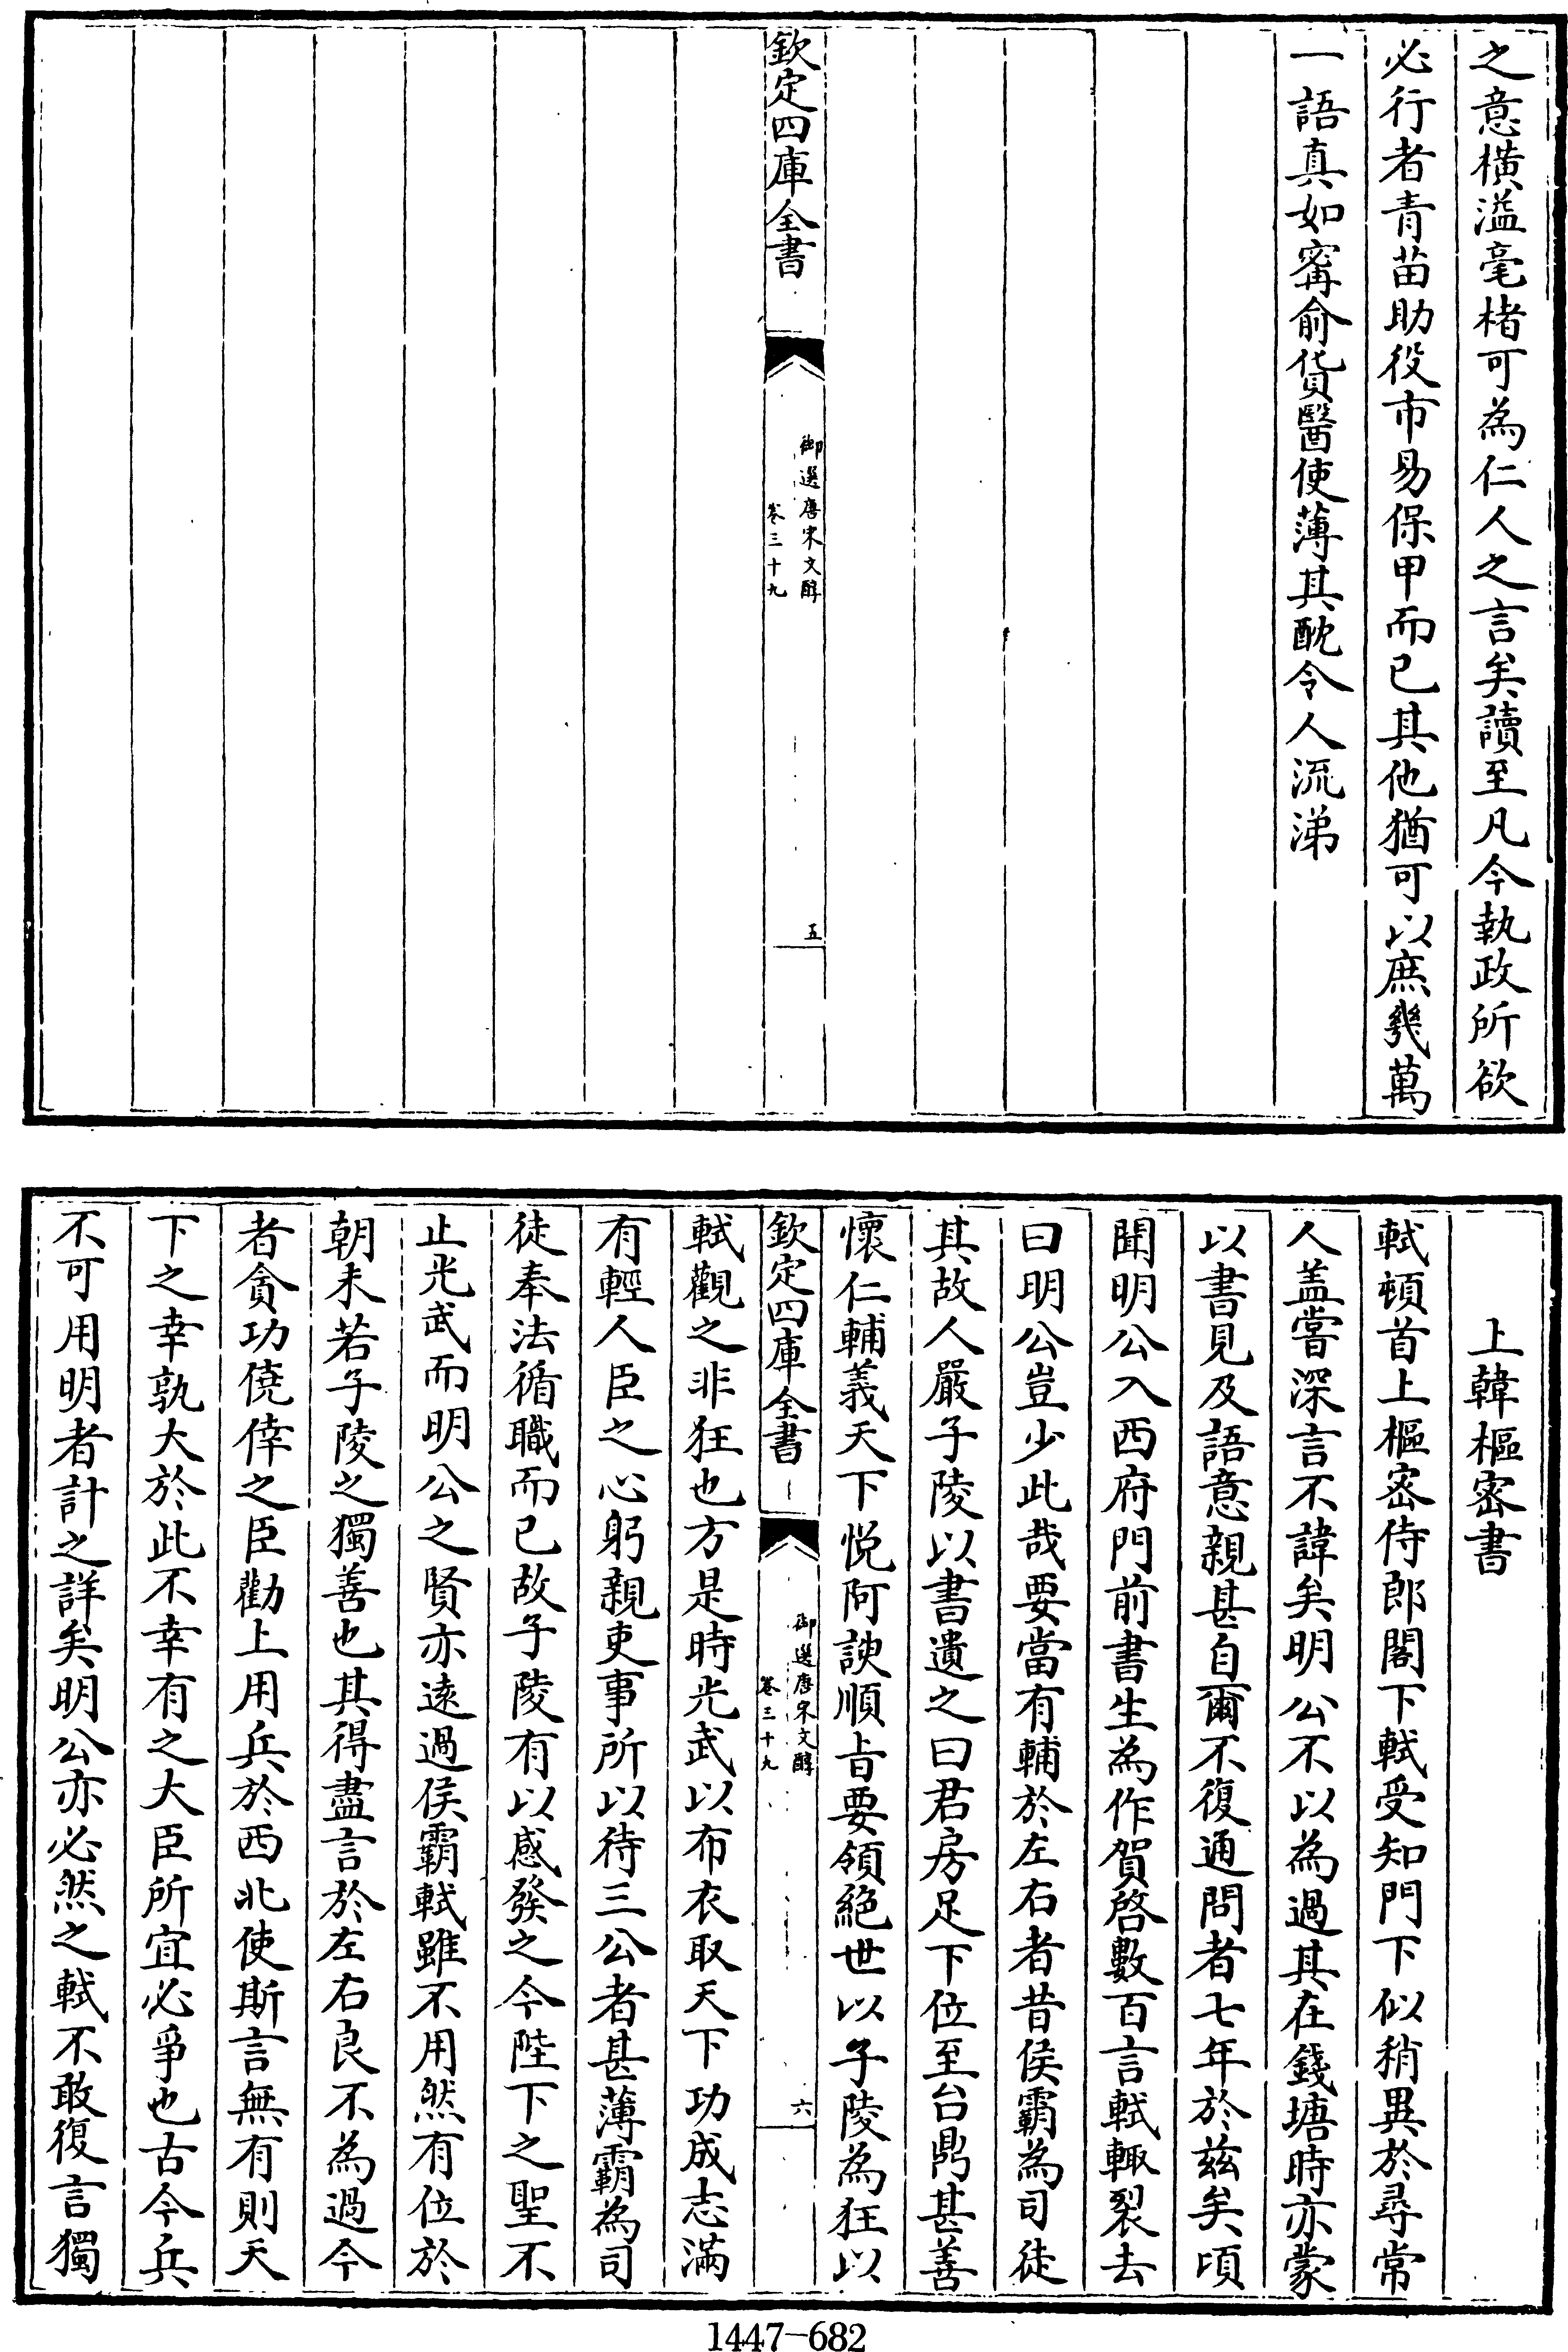 之意橫溢毫楮可為仁人之言矣讀至凡今執政所欲
必行者青苗助役市易保甲而已其他猶可以庶幾萬
一語真如甯俞貨醫使薄其酖令人流涕
欽定四庫全書
御選唐宋文醇
卷三十九
五
上韓樞密書
軾頓首上樞密侍郎閣下軾受知門下似稍異於尋常
人盖嘗深言不諱矣明公不以為過其在錢塘時亦蒙
以書見及語意親甚自爾不復通問者七年於兹矣頃
聞明公入西府門前書生為作賀啓數百言軾輙裂去
曰明公豈少此哉要當有輔於左右者昔侯霸為司徒
其故人嚴子陵以書遺之曰君房足下位至台鼎甚善
懷仁輔義天下悅阿諛順旨要領絕世以子陵為狂以
欽定四庫全書
御選唐宋文醇
卷三十九
六
軾觀之非狂也方是時光武以布衣取天下功成志滿
有輕人臣之心躬親吏事所以待三公者甚薄霸為司
徒奉法循職而已故子陵有以感發之今陛下之聖不
止光武而明公之賢亦遠過侯霸軾雖不用然有位於
朝未若子陵之獨善也其得盡言於左右良不為過今
者貪功僥倖之臣勸上用兵於西北使斯言無有則天
下之幸孰大於此不幸有之大臣所宜必爭也古今兵
不可用明者計之詳矣明公亦必然之軾不敢復言獨
1447-682